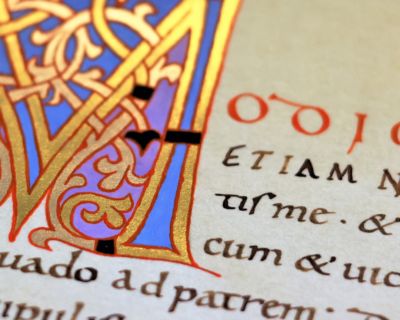 MODI
ETIAM N
tis me · &
cum &
uado ad patrem ·